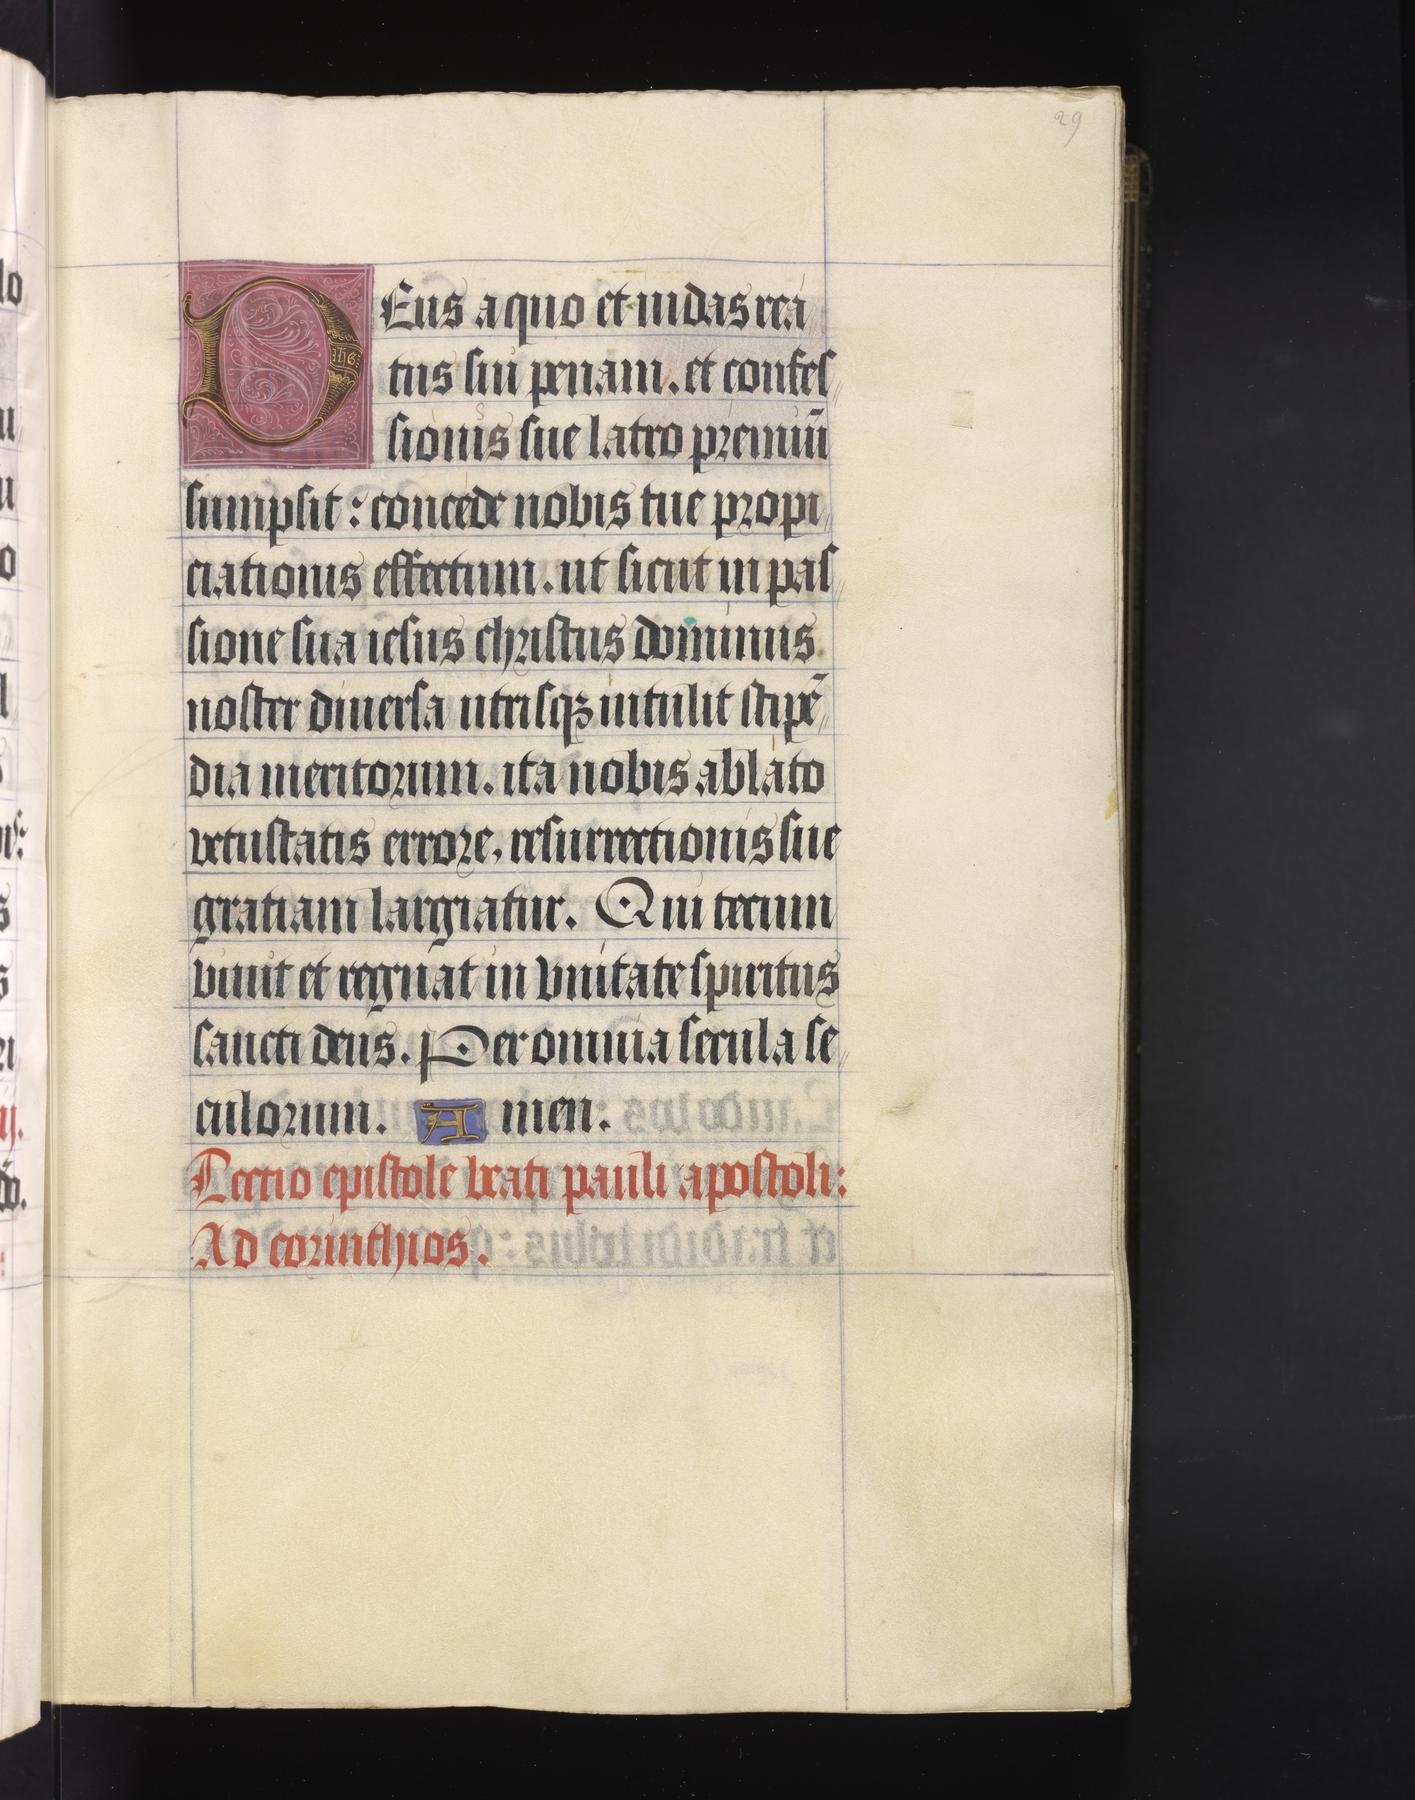 29
DEus a quo et iudas rea
tus sui penam. et confes
sionis sue latro premiū
sumpsit : concede nobis tue propi
ciationis effectum. ut sicut in pas
sione sua iesus christus dominus
noster diuersa utrisqꝫ intulit stipē
dia meritorum. ita nobis ablato
vetustatis errore, resurrectionis sue
gratiam largiatur. Qui tecum
viuit et regnat in vnitate spiritus
sancti deus. Per omnia secula se
culorum. Amen.
Lectio epistole beati pauli apostoli:
Ad corinthios.